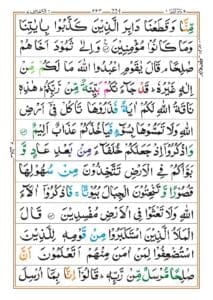 مِّنَّا وَقَطَعْنَا دَابِرَ الَّذِيْنَ كَذَّبُوْا بِاٰيٰتِنَا
وَمَا كَانُوْا مُؤْمِنِيْنَ ۞ وَاِلٰى ثَمُوْدَ اَخَاهُمْ
صٰلِحًا ۘ قَالَ يٰقَوْمِ اعْبُدُوا اللّٰهَ مَا لَكُمْ مِّنْ
اِلٰهٍ غَيْرُهٗ ؕ قَدْ جَآءَتْكُمْ بَيِّنَةٌ مِّنْ رَّبِّكُمْ ؕ هٰذِهٖ
نَاقَةُ اللّٰهِ لَكُمْ اٰيَةً فَذَرُوْهَا تَاْكُلْ فِيْۤ اَرْضِ
اللّٰهِ وَلَا تَمَسُّوْهَا بِسُوْٓءٍ فَيَاْخُذَكُمْ عَذَابٌ اَلِيْمٌ ۞
وَاذْكُرُوْۤا اِذْ جَعَلَكُمْ خُلَفَآءَ مِنْۢ بَعْدِ عَادٍ وَّ
بَوَّاَكُمْ فِى الْاَرْضِ تَتَّخِذُوْنَ مِنْ سُهُوْلِهَا
قُصُوْرًا وَّتَنْحِتُوْنَ الْجِبَالَ بُيُوْتًا ۚ فَاذْكُرُوْۤا اٰلَآءَ
اللّٰهِ وَلَا تَعْثَوْا فِى الْاَرْضِ مُفْسِدِيْنَ ۞ قَالَ
الْمَلَاُ الَّذِيْنَ اسْتَكْبَرُوْا مِنْ قَوْمِهٖ لِلَّذِيْنَ
اسْتُضْعِفُوْا لِمَنْ اٰمَنَ مِنْهُمْ اَتَعْلَمُوْنَ اَنَّ
صٰلِحًا مُّرْسَلٌ مِّنْ رَّبِّهٖ ؕ قَالُوْۤا اِنَّا بِمَاۤ اُرْسِلَ